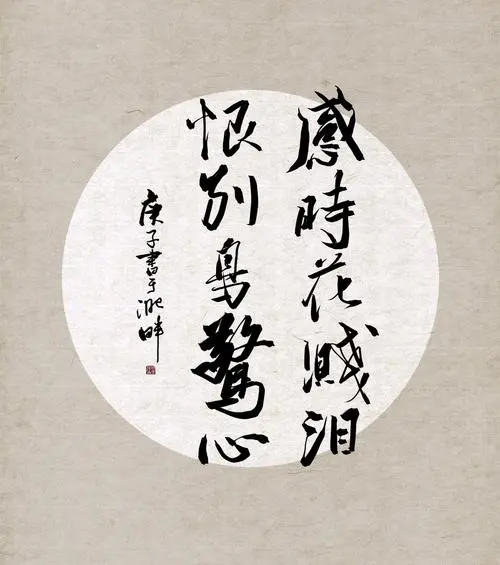 感時花濺泪
恨别鳥驚心
庚子書于淝畔